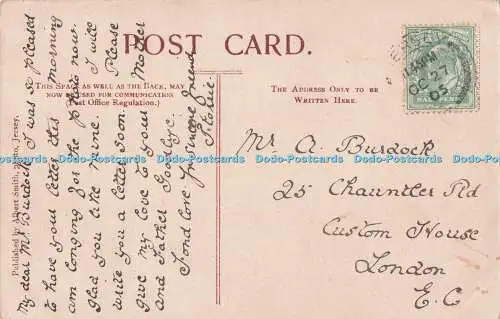 POST CARD.
THIS SPACE, AS WELL AS THE BACK, MAY
NOW BE USED FOR COMMUNICATION
(Post Office Regulation.)
THE ADDRESS ONLY TO BE
WRITTEN HERE.
Published by Albert Smith, Photo, Jersey.
My dear Mr Burdock I was so pleased
to have your letter this morning
am longing for the photo now.
glad you like mine. I will
write you a letter soon. Please
give my love to your Mother
and Father Goodbye.
Fond love your sincere friend
JERSEY
OC 27
05
HALF PENNY
Mr A. Burdock
25 Chauntler Rd
Custom House
London
E.C
Dodo-Postcards Dodo-Postcards Dodo-Postcards Dodo-Postcards Dodo-Postcards